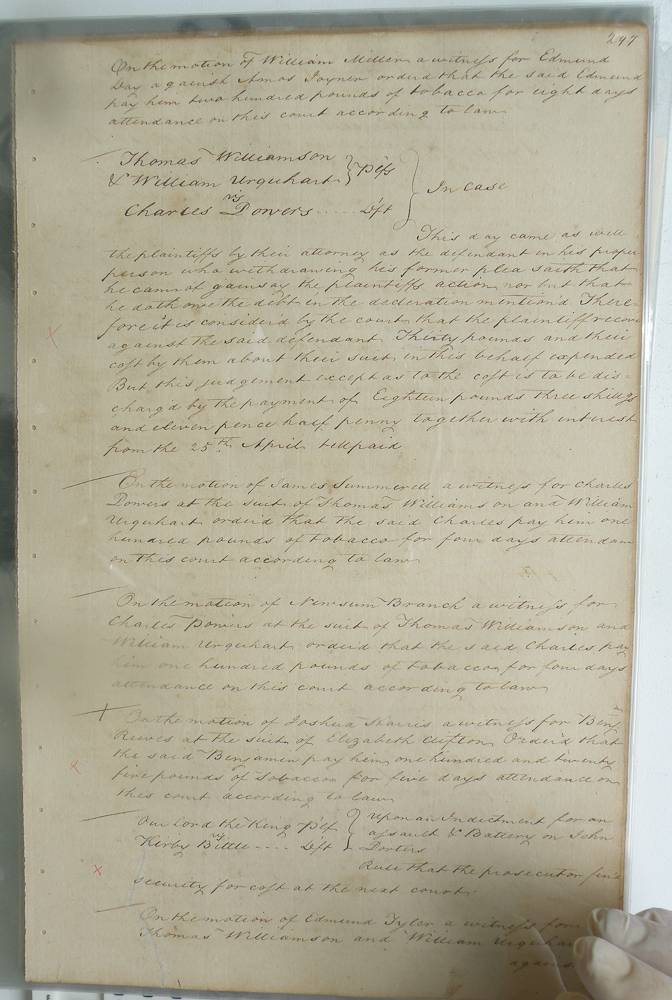 247
On the motion of William Miller a witness for Edmund
Day against Amos Joyner orderd that the said Edmund
pay him two hundred pounds of tobacco for eight days
attendance on this court according to law
Thomas Williamson
& William Urquhart } Plfs
vs
Charles Powers ..... Dft } In Case
This day came as well
the plaintiffs by their attorney as the defendant in his proper
person who withdrawing his former plea saith that
he cannot gainsay the plaintiffs action nor but that
he doth owe the debt in the declaration mention'd There-
fore it is consider'd by the court that the plaintiff recover
against the said defendant Thirty pounds and their
cost by them about their suit in this behalf expended
But this judgement except as to the cost is to be dis-
charg'd by the payment of Eighteen pounds three shillgs
and eleven pence half penny together with interest
from the 25th April till paid
On the motion of James Summerell a witness for Charles
Powers at the suit of Thomas Williamson and William
Urquhart order'd that the said Charles pay him one
hundred pounds of tobacco for four days attendance
on this court according to law
On the motion of Newsum Branch a witness for
Charles Powers at the suit of Thomas Williamson and
William Urquhart order'd that the said Charles pay
him one hundred pounds of tobacco for four days
attendance on this court according to law
On the motion of Joshua Harris a witness for Benj
Reeves at the suit of Elizabeth Clifton Order'd that
the said Benjamin pay him one hundred and twenty
five pounds of tobacco for five days attendance on
this court according to law
Our Lord the King Plf
vs
Kirby Bittle .... Dft } Upon an Indictment for an
assault & Battery on John
Porters
Rule that the prosecutor
security for cost at the next court
On the motion of Edmund Tyler a witness for
Thomas Williamson and William Urquhart
against